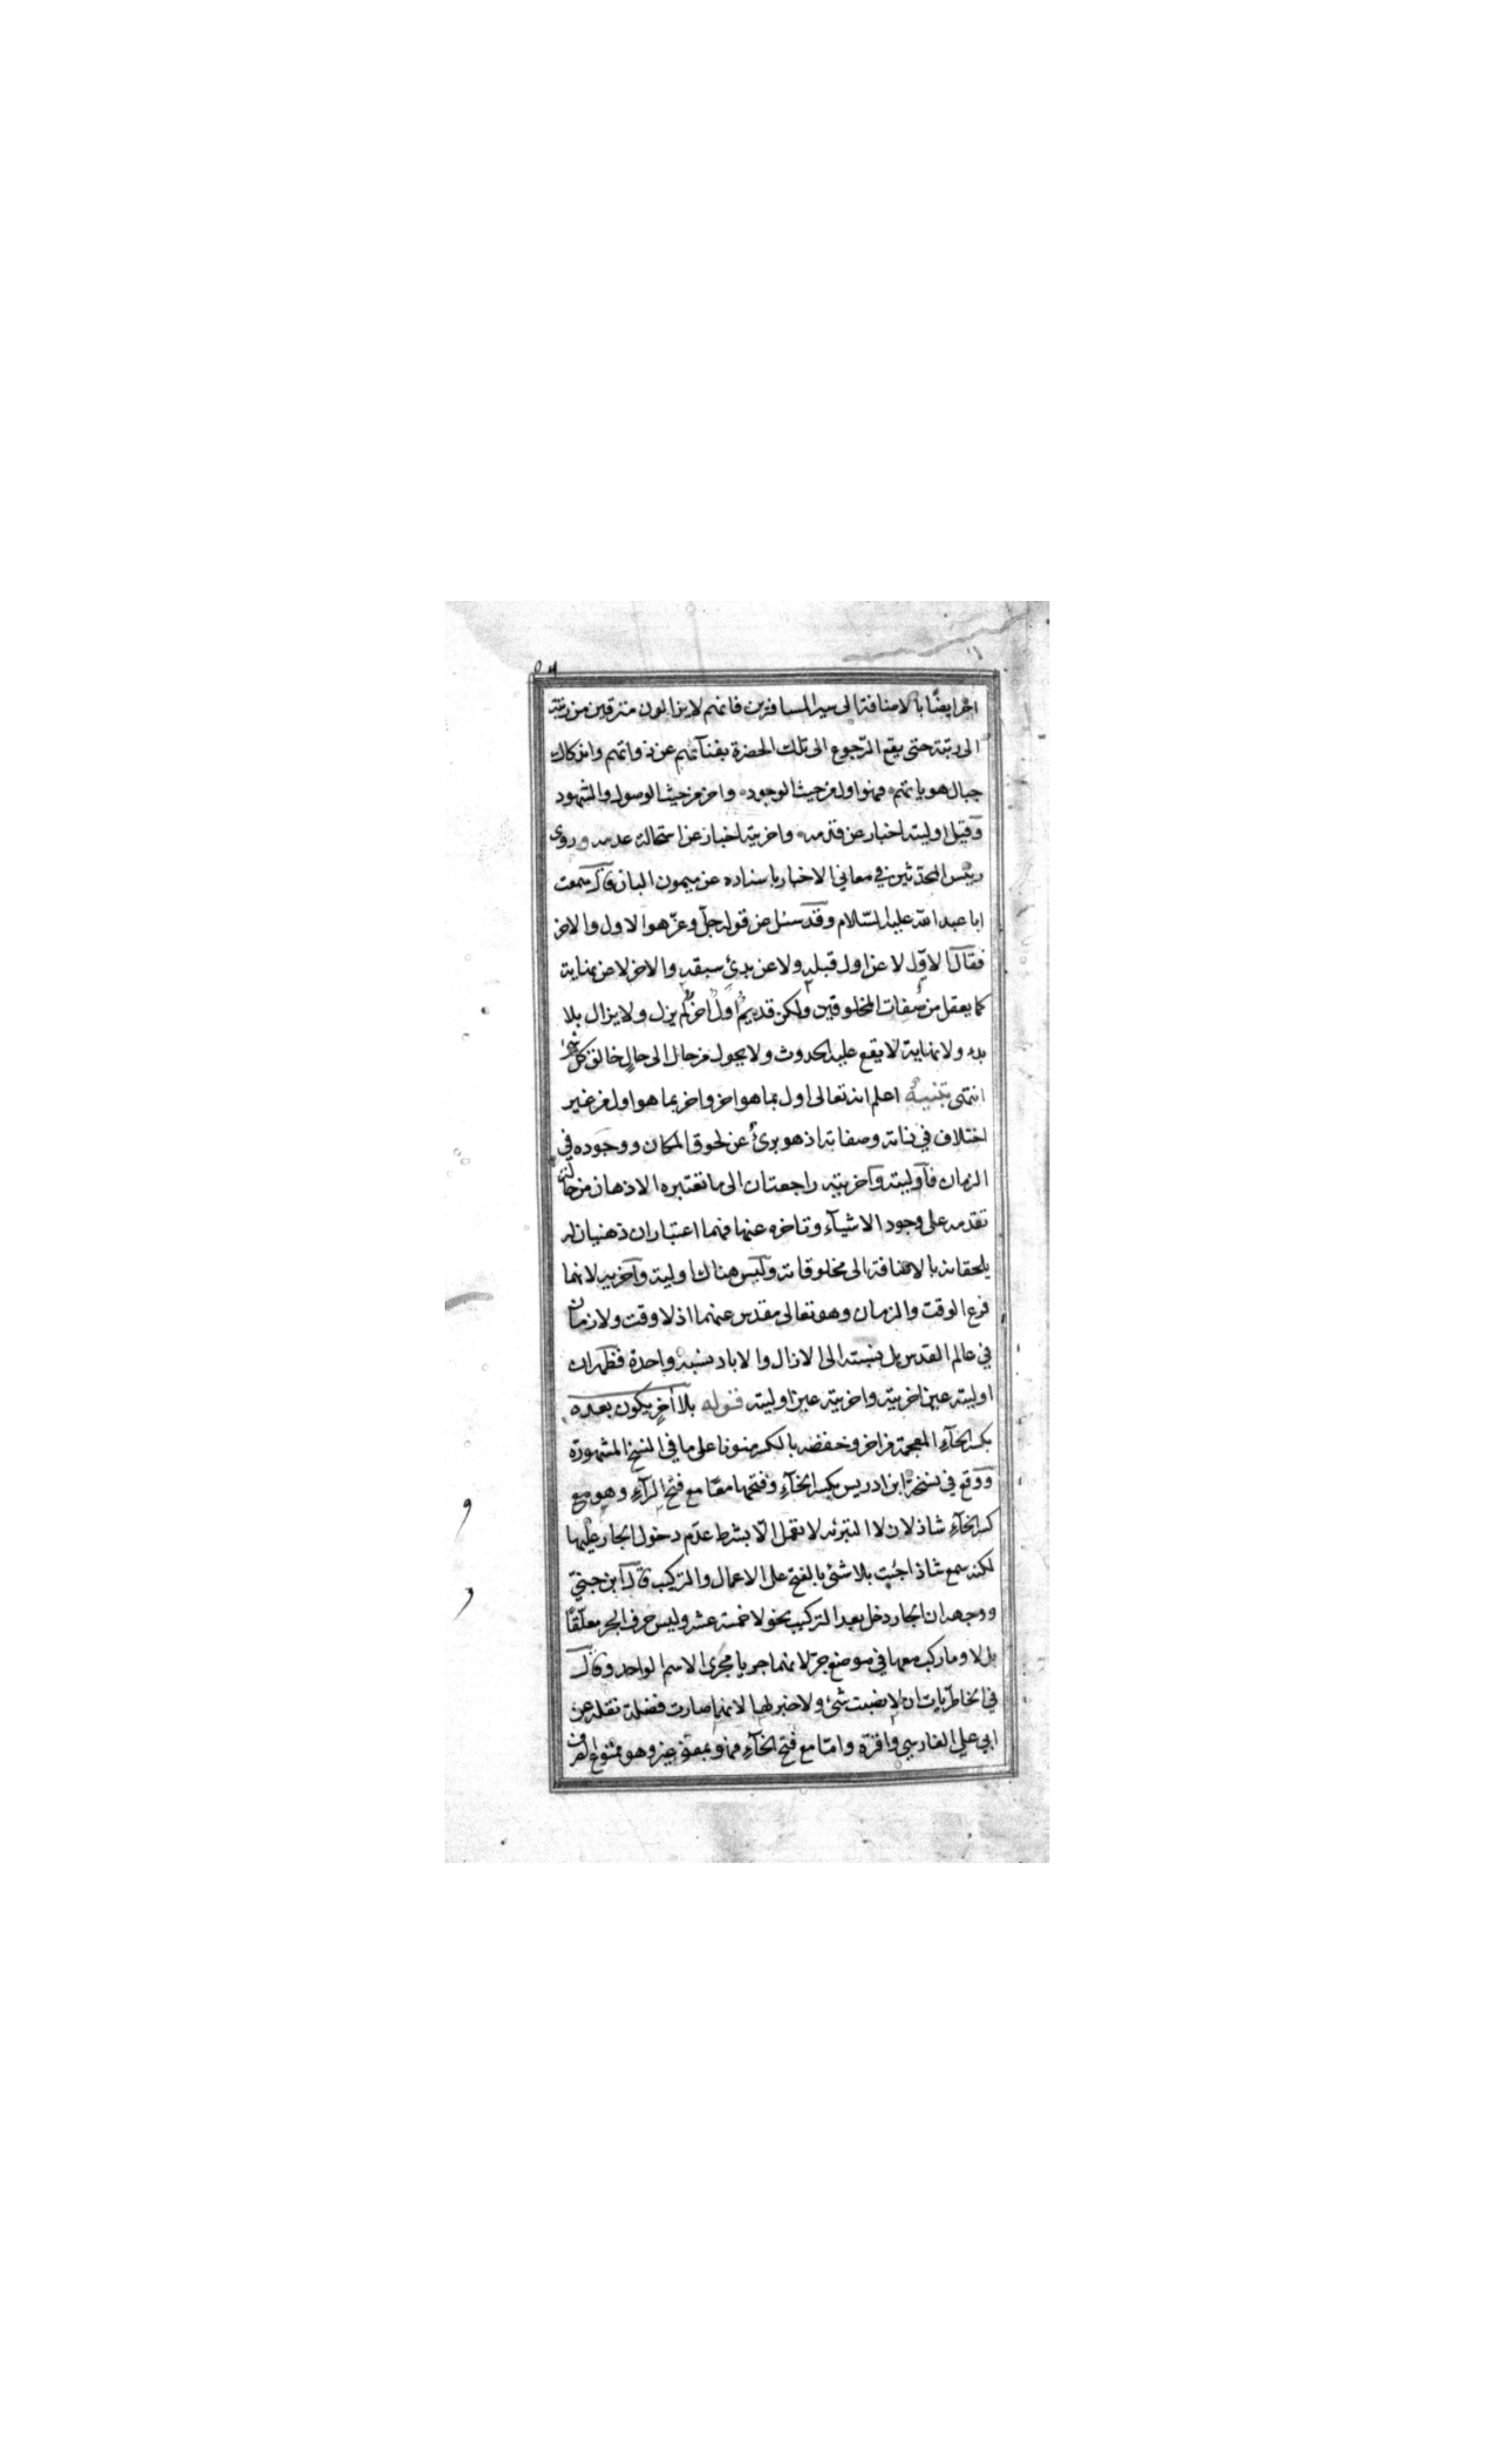 اخر ايضًا بالاضافة الى سير المسافرين فانهم لا يزالون مترقين من رتبة
الى رتبة حتى يقع الرّجوع الى تلك الحضرة بفنآئهم عن ذواتهم واندكاك
جبال هوياتهم فهو اول من حيث الوجود واخر من حيث الوصول والشهود
وقيل اوليته اخبار عن قدمه واخريته اخبار عن استحالة عدمه وروى
رئيس المحدّثين في معاني الاخبار باسناده عن ميمون البان قال سمعت
ابا عبد الله عليه السّلام وقد سئل عن قوله جلّ وعزّ هو الاول والاخر
فقال الاوّل لا عن اول قبله ولا عن بدئٍ سبقه والاخر لا عن نهاية
كما يعقل من صفات المخلوقين ولكن قديمٌ اولٌ اخرٌ لم يزل ولا يزال بلا
بدء ولا نهاية لا يقع عليه الحدوث ولا يحول من حال الى حالٍ خالق كل شئ
انتهى تنبيهٌ اعلم انه تعالى اول بما هو اخر واخر بما هو اول من غير
اختلاف في ذاته وصفاته اذ هو برئٌ عن لحوق المكان ووجوده في
الزمان فاوليته وآخريته راجعتان الى ما تعتبره الاذهان من حالتى
تقدمه على وجود الاشيآء وتاخره عنها فهما اعتباران ذهنيان له
يلحقانه بالاضافة الى مخلوقاته وليس هناك اولية وآخرية لانهما
فرع الوقت والزمان وهو تعالى مقدس عنهما اذ لا وقت ولا زمان
في عالم القدس بل نسبته الى الازال والاباد نسبة واحدة فظهر ان
اوليته عين اخريته واخريته عين اوليته قوله بلا اخرٍ يكون بعده
بكسر الخآء المعجمة من اخر وخفضه بالكسر منونا على ما في النسخ المشهورة
ووقع في نسخة ابن ادريس بكسر الخآء وفتحها معًا مع فتح الرآء وهو مع
كسر الخآء شاذ لان لا التبرئه لا تعمل الّا بشرط عدم دخول الجار عليها
لكنه سمع شاذا جئت بلا شئ بالفتح على الاعمال والتركيب قال ابن جنيّ
ووجهه ان الجار دخل بعد التركيب نحو لا خمسة عشر وليس حرف الجر معلّقًا
بل لا وما ركب معها في موضع جرّ لانهما جريا مجرى الاسم الواحد وقال
في الخاطرّيات ان لا نصبت شئ ولا خبر لها لانها صارت فضلة نقله عن
ابي علي الفارسي واقرّه وامّا مع فتح الخآء فهو بمعنى غير وهو ممنوع الصرف